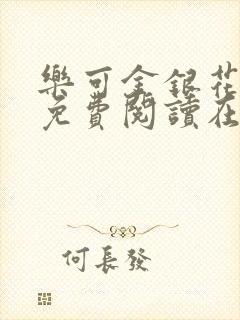 樂可金銀花
免費閱讀在
何長發